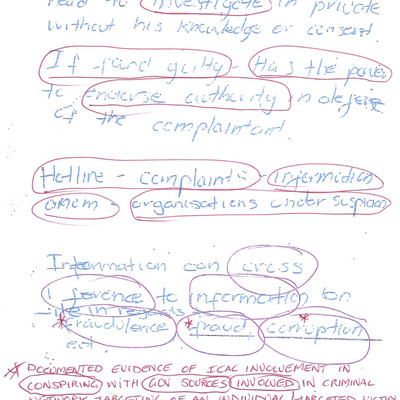 read to investigate in private
without his knowledge or consent.
If found guilty - Has the power
to endorse authority in defense
of the complainant
Hotline - complaints - information
on organisations under suspicion
Information can cross
ference to information on
file in regards to
*fraudulence *fraud, corruption*
ect
* DOCUMENTED EVIDENCE OF ICAC INVOLVEMENT IN
CONSPIRING WITH GOV SOURCES INVOLVED IN CRIMINAL
NETWORK TARGETING OF AN INDIVIDUAL / TARGETED VICTIM